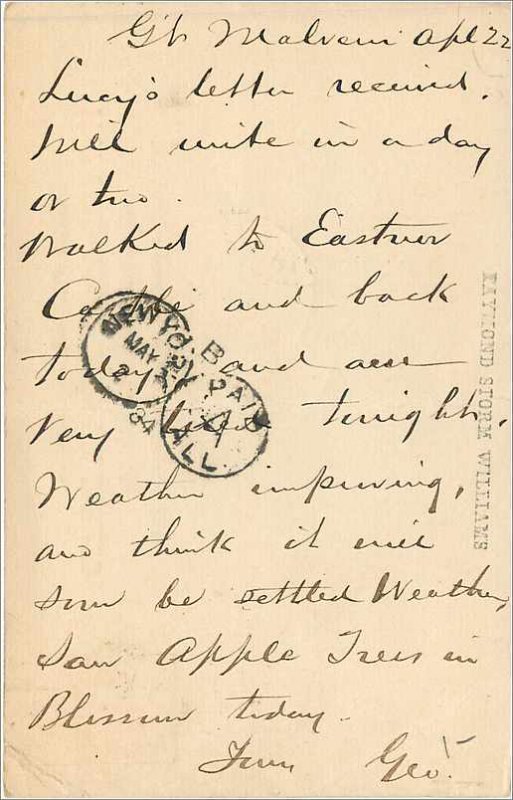 Gt. Malvern Apl 22
Lucy's letter received.
Will write in a day
or two.
Walked to Eastnor
Castle and back
today and am
very tired tonight.
Weather improving,
and think it will
soon be settled Weather,
Saw Apple Trees in
Blossom today.
Geo.
NEW YO
MAY
84
PAID
ALL
RAYMOND STORM WILLIAMS